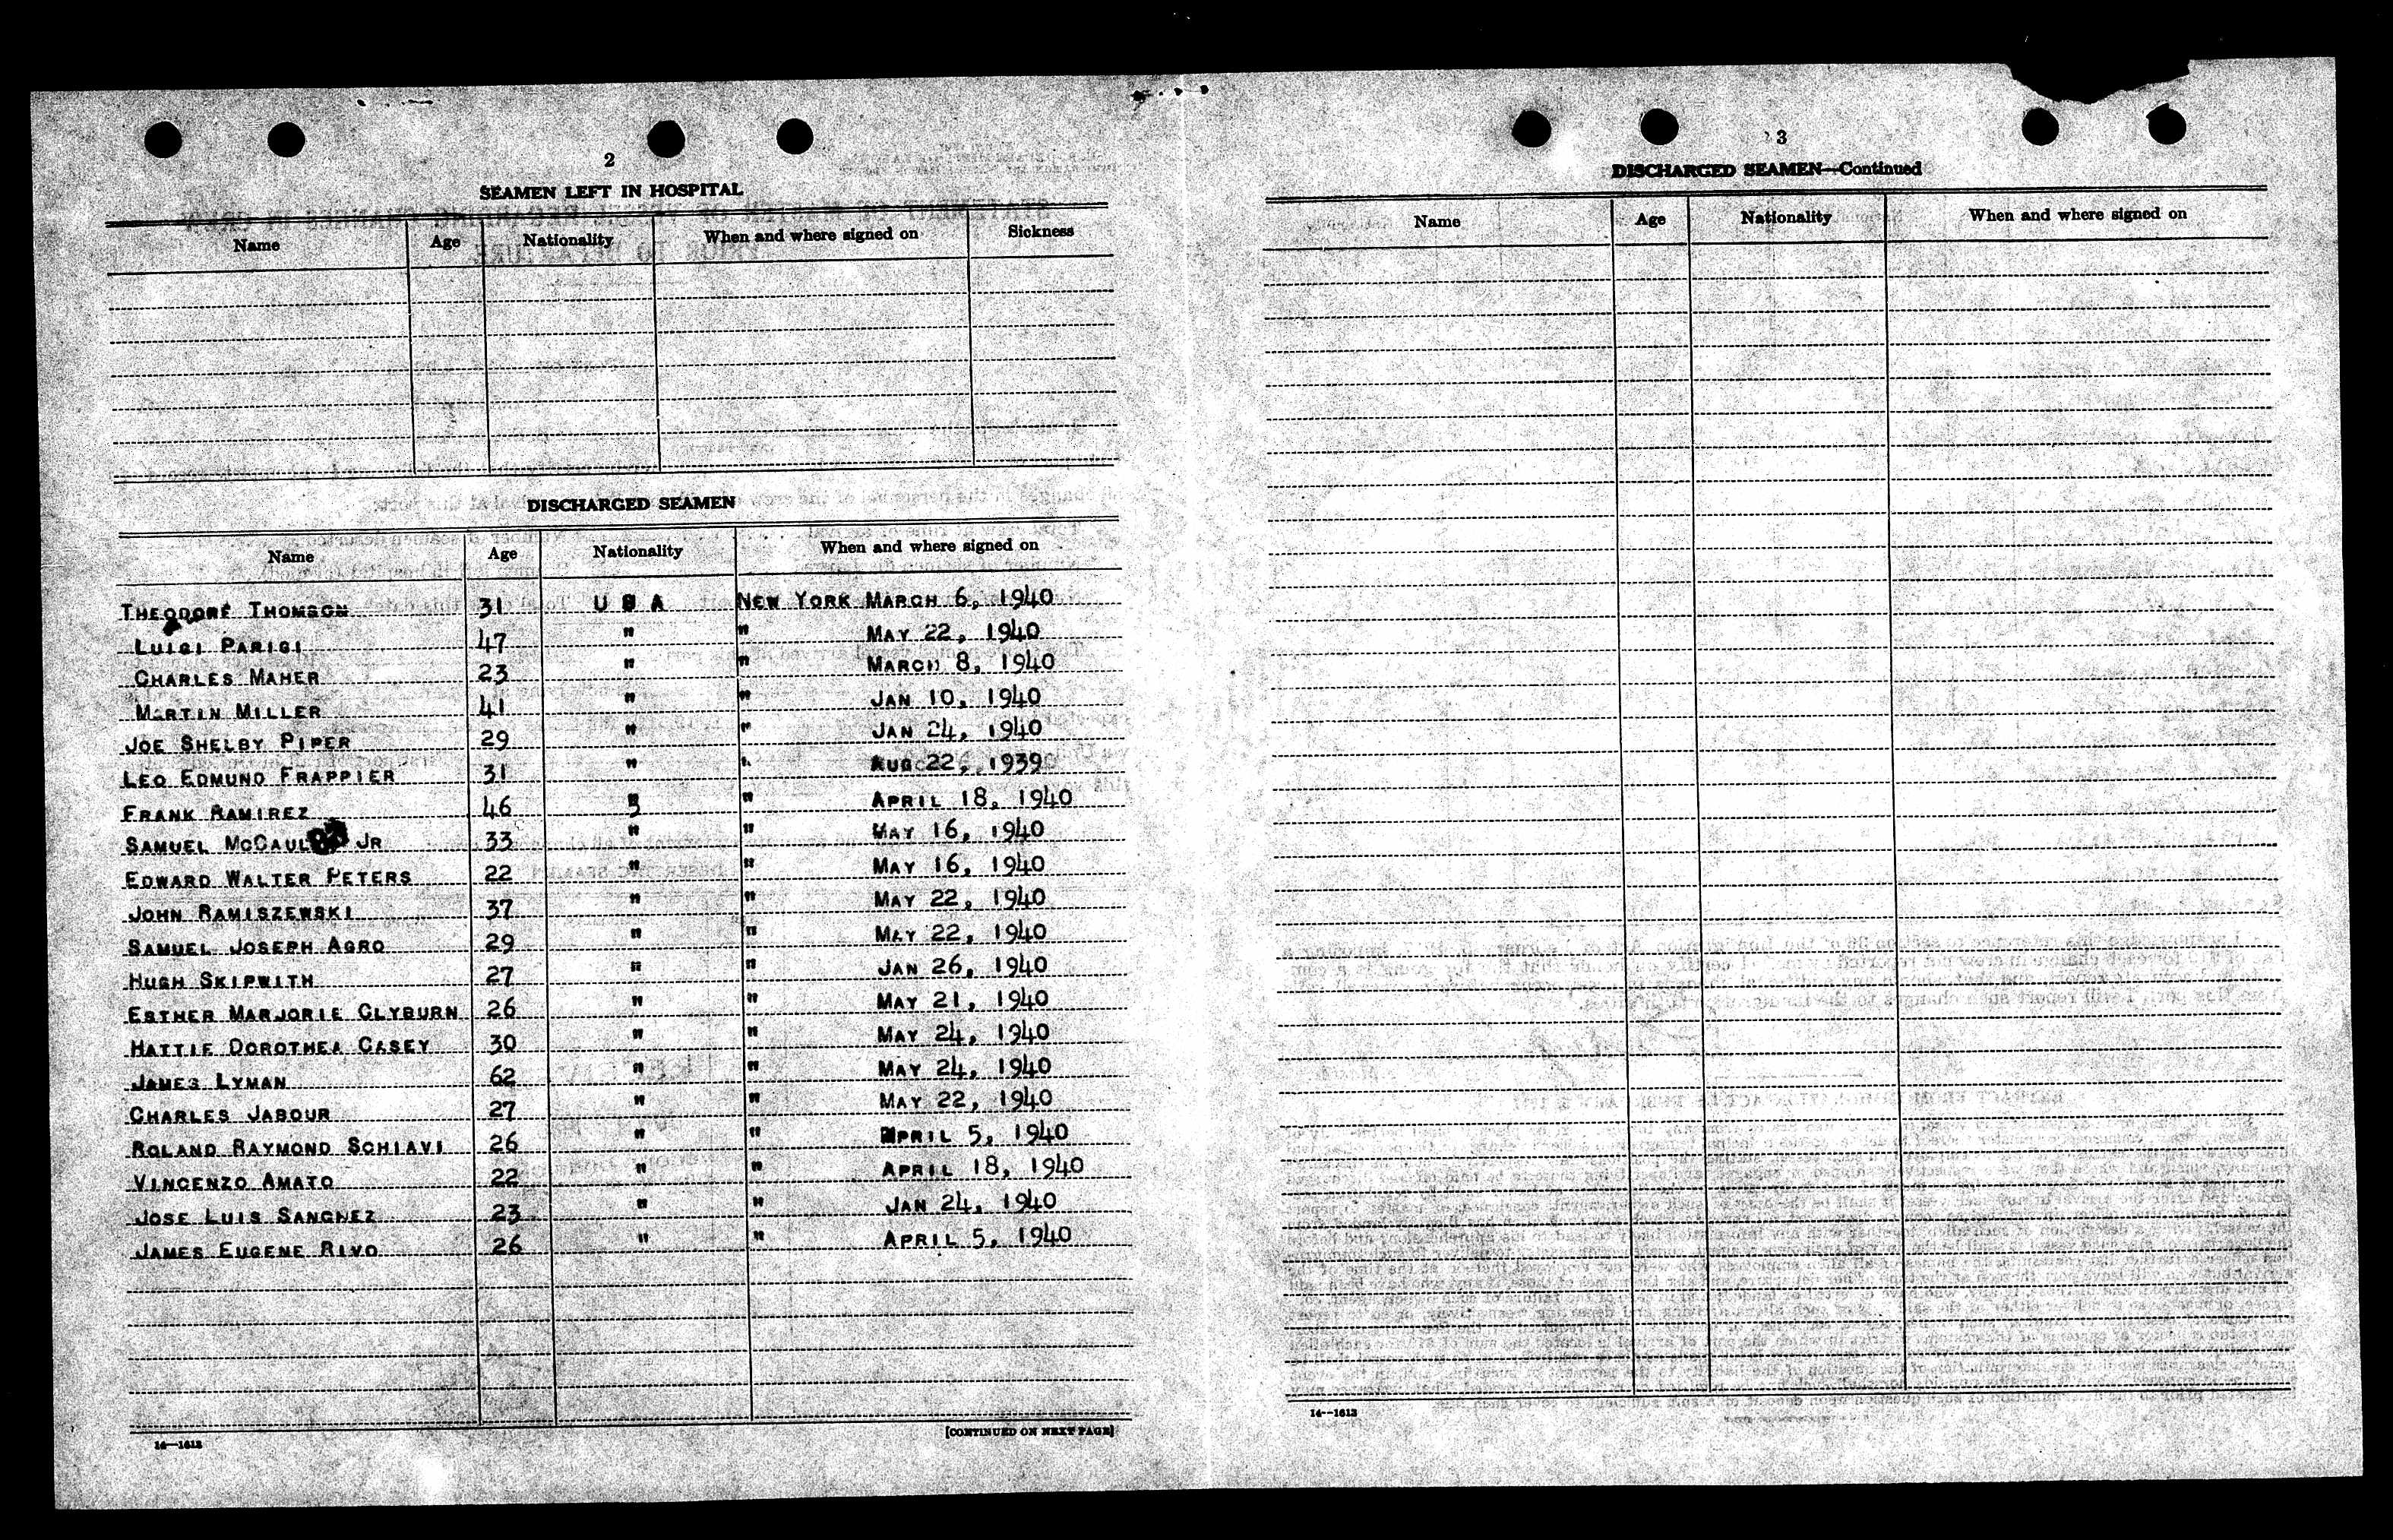 2
SEAMEN LEFT IN HOSPITAL
Name Age Nationality When and where signed on Sickness
DISCHARGED SEAMEN
Name Age Nationality When and where signed on
THEODORE THOMSON 31 U S A NEW YORK MARCH 6, 1940
LUIGI PARIGI 47 " " MAY 22, 1940
CHARLES MAHER 23 " " MARCH 8, 1940
MARTIN MILLER 41 " " JAN 10, 1940
JOE SHELBY PIPER 29 " " JAN 24, 1940
LEO EDMUND FRAPPIER 31 " " AUG 22, 1939
FRANK RAMIREZ 46 " " APRIL 18, 1940
SAMUEL JR 33 " " MAY 16, 1940
EDWARD WALTER PETERS 22 " " MAY 16, 1940
JOHN RAMISZEWSKI 37 " " MAY 22, 1940
SAMUEL JOSEPH AGRO 29 " " MAY 22, 1940
HUGH SKIPWITH 27 " " JAN 26, 1940
ESTHER MARJORIE CLYBURN 26 " " MAY 21, 1940
HATTIE DOROTHEA CASEY 30 " " MAY 24, 1940
JAMES LYMAN 62 " " MAY 24, 1940
CHARLES JABOUR 27 " " MAY 22, 1940
ROLAND RAYMOND SCHIAVI 26 " " APRIL 5, 1940
VINCENZO AMATO 22 " " APRIL 18, 1940
JOSE LUIS SANCHEZ 23 " " JAN 24, 1940
JAMES EUGENE RIVO 26 " " APRIL 5, 1940
14—1613
[CONTINUED ON NEXT PAGE]
3
DISCHARGED SEAMEN—Continued
Name Age Nationality When and where signed on
14—1613